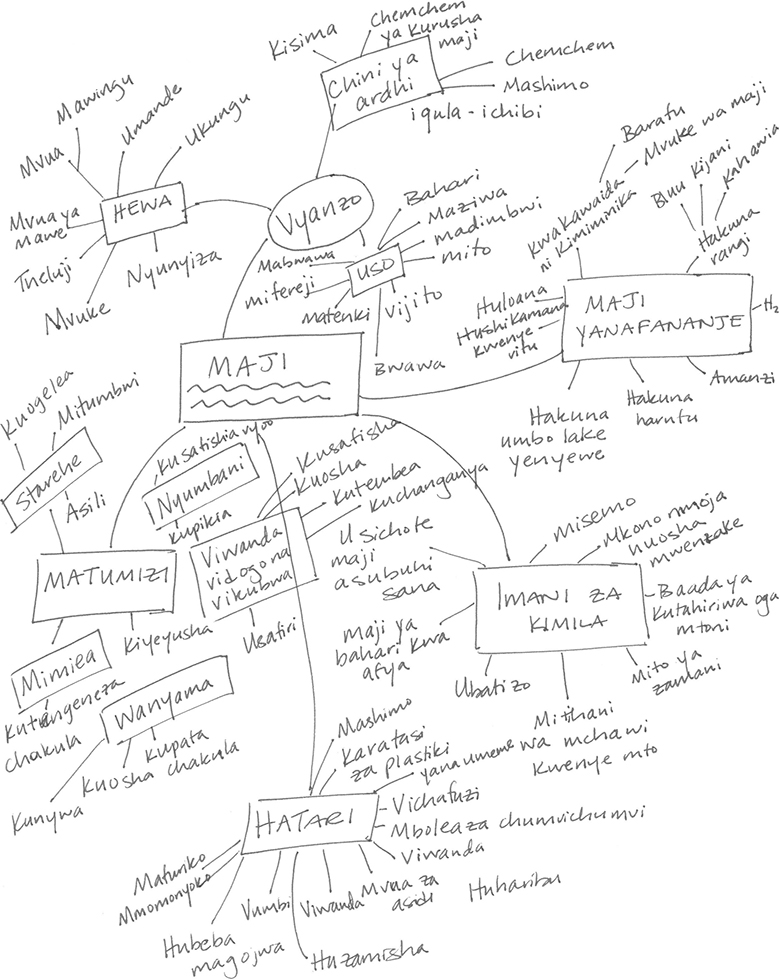 Kisima
Chemchem
ya Kurusha
maji
Chini ya
ardhi
Chemchem
Mashimo
iqula - ichibi
Mawingu
Mvua
Umande
Ukungu
HEWA
Mvua ya
mawe
Theluji
Mvuke
Nyunyiza
Vyanzo
USO
Bahari
Maziwa
madimbwi
mito
Mabwawa
mifereji
Matenki
Vijito
Bwawa
Barafu
Mvuke wa maji
Kwa kawaida
ni kimiminika
Bluu
Kijani
Kahawia
Hakuna
rangi
MAJI
YANAFANANJE
Huloana
Hushikamana
kwenye
vitu
H2
Amanzi
Hakuna
harufu
Hakuna
umbo lake
yenyewe
MAJI
Kuogelea
Mitumbwi
Starehe
Asili
MATUMIZI
Kusafishia vyoo
Nyumbani
Kupikia
Viwanda
vidogo na
vikubwa
Kusafisha
Kuosha
Kutembea
Kuchanganya
Usafiri
Kiyeyusha
Mimea
Kutengeneza
chakula
Wanyama
Kupata
chakula
Kuosha
Kunywa
IMANI ZA
KIMILA
Usichote
maji
asubuhi
sana
Misemo
Mkono mmoja
huosha
mwenzake
Baada ya
kutahiriwa oga
mtoni
Mito ya
zamani
Mitihani
wa mchawi
kwenye mto
Ubatizo
maji ya
bahari kwa
afya
HATARI
Mashimo
Karatasi
za plastiki
yana umeme
Vichafuzi
Mbolea za chumvichumvi
Viwanda
Mvua za
asidi
Huharibu
Viwanda
Huzamisha
Vumbi
Hubeba
magojwa
Mmomonyoko
Mafuriko